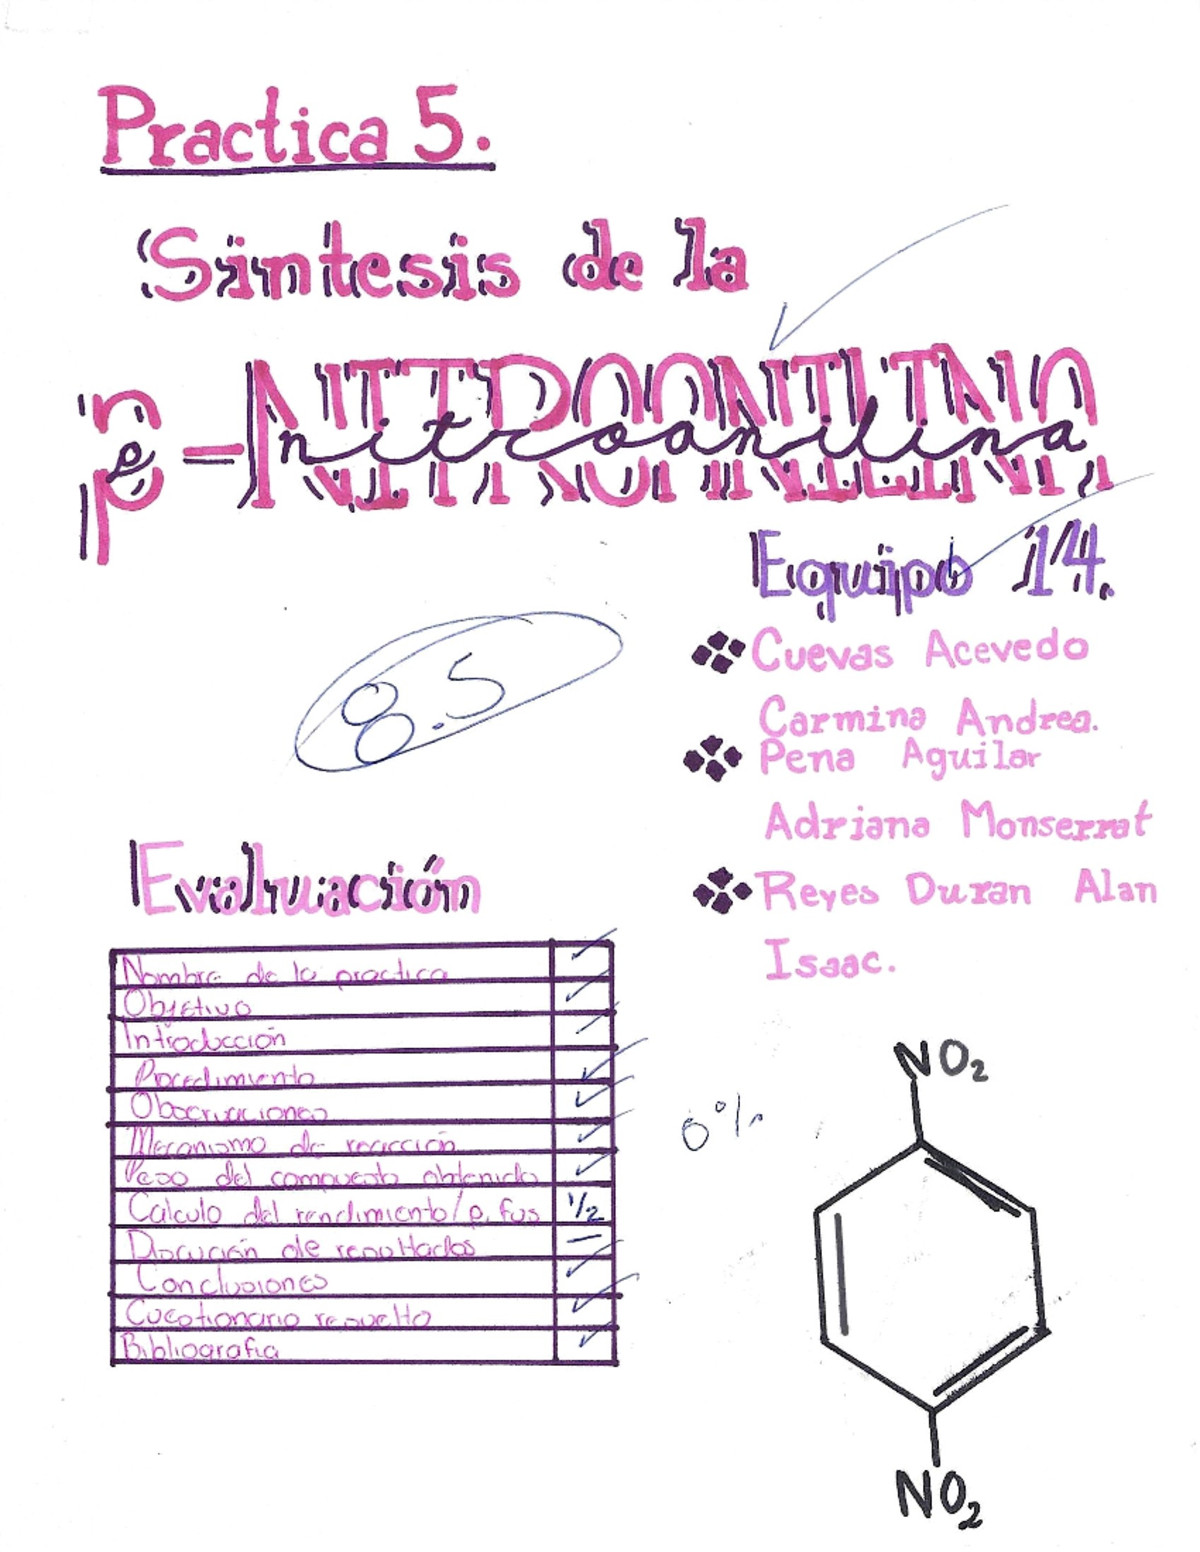 Practica 5.
Síntesis de la
p-NITROANILINA
nitroanilina
Equipo 14.
Cuevas Acevedo
Carmina Andrea.
Pena Aguilar
Adriana Monserrat
Reyes Duran Alan
Isaac.
8.5
Evaluación
Nombre de la practica
Objetivo
Introducción
Procedimiento
Observaciones
Mecanismo de reacción
Peso del compuesto obtenido
Calculo del rendimiento/p. fus 1/2
Discusión de resultados —
Conclusiones
Cuestionario resuelto
Bibliografia
0%
NO₂
NO₂